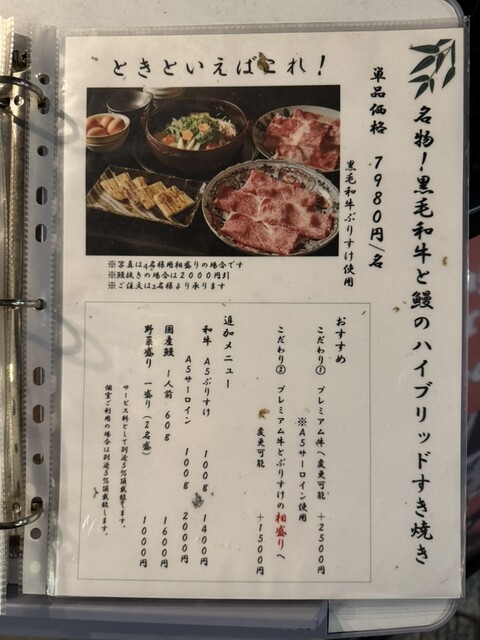 ときといえばこれ！
名物！黒毛和牛と鰻のハイブリッドすき焼き
単品価格　7980円/名
黒毛和牛ぶりすけ使用
※写真は4名様用相盛りの場合です
※鰻抜きの場合は2000円引
※ご注文は2名様より承ります
おすすめ
こだわり① プレミアム牛へ変更可能 ＋2500円
※A5サーロイン使用
こだわり② プレミアム牛とぶりすけの相盛りへ
変更可能 ＋1500円
追加メニュー
和牛 A5ぶりすけ 100g 1400円
A5サーロイン 100g 2000円
国産鰻 1人前 60g 1600円
野菜盛り 一盛り（2名盛） 1000円
サービス料として別途5%頂戴致します。
個室ご利用の場合は別途5%頂戴致します。